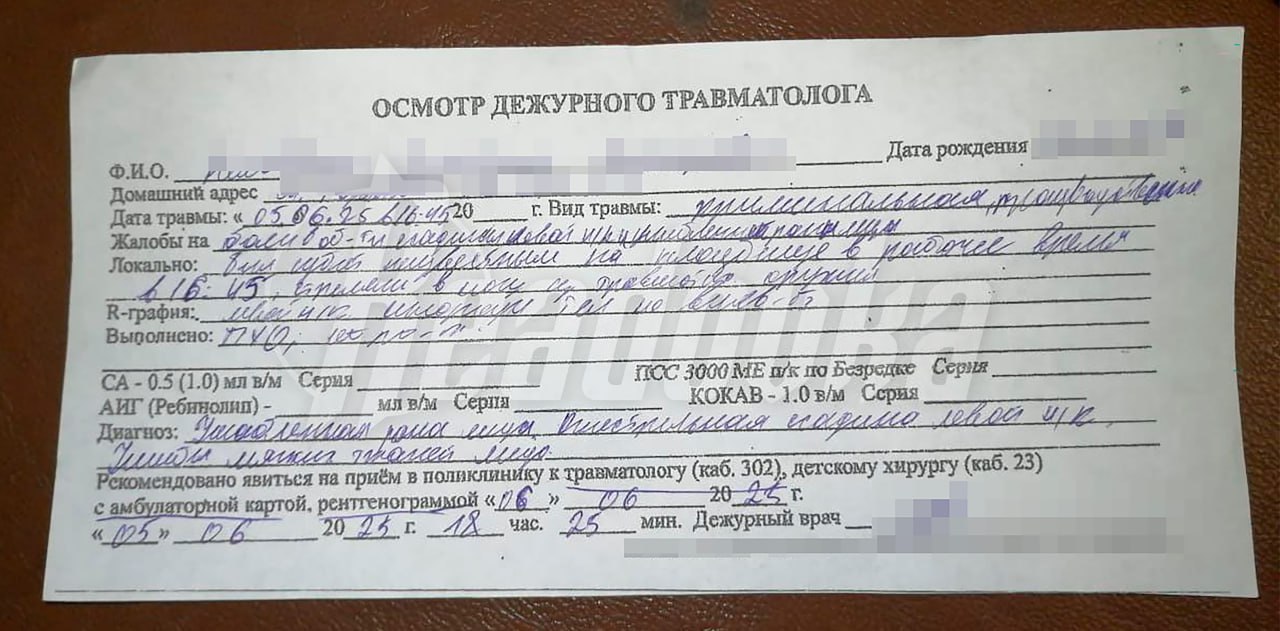 ОСМОТР ДЕЖУРНОГО ТРАВМАТОЛОГА
Ф.И.О. Дата рождения
Домашний адрес
Дата травмы: « 05.06.25 в 16:45 20 г. Вид травмы: криминальная, производственная
Жалобы на боли в об-ти левой щеки
Локально: Был избит неизвестным на площадке в рабочее время
в 16:45, стреляли в из оружия
R-графия: тел не
Выполнено: ПХО,
СА - 0.5 (1.0) мл в/м Серия ПСС 3000 МЕ п/к по Безредке Серия
АИГ (Ребинолин) - мл в/м Серия КОКАВ - 1.0 в/м Серия
Диагноз: Ушибленная рана лица. Огнестрельная ссадина левой щеки.
Ушибы мягких тканей лица.
Рекомендовано явиться на приём в поликлинику к травматологу (каб. 302), детскому хирургу (каб. 23)
с амбулаторной картой, рентгенограммой «06» 06 2025 г.
«05» 06 2025 г. 18 час. 25 мин. Дежурный врач